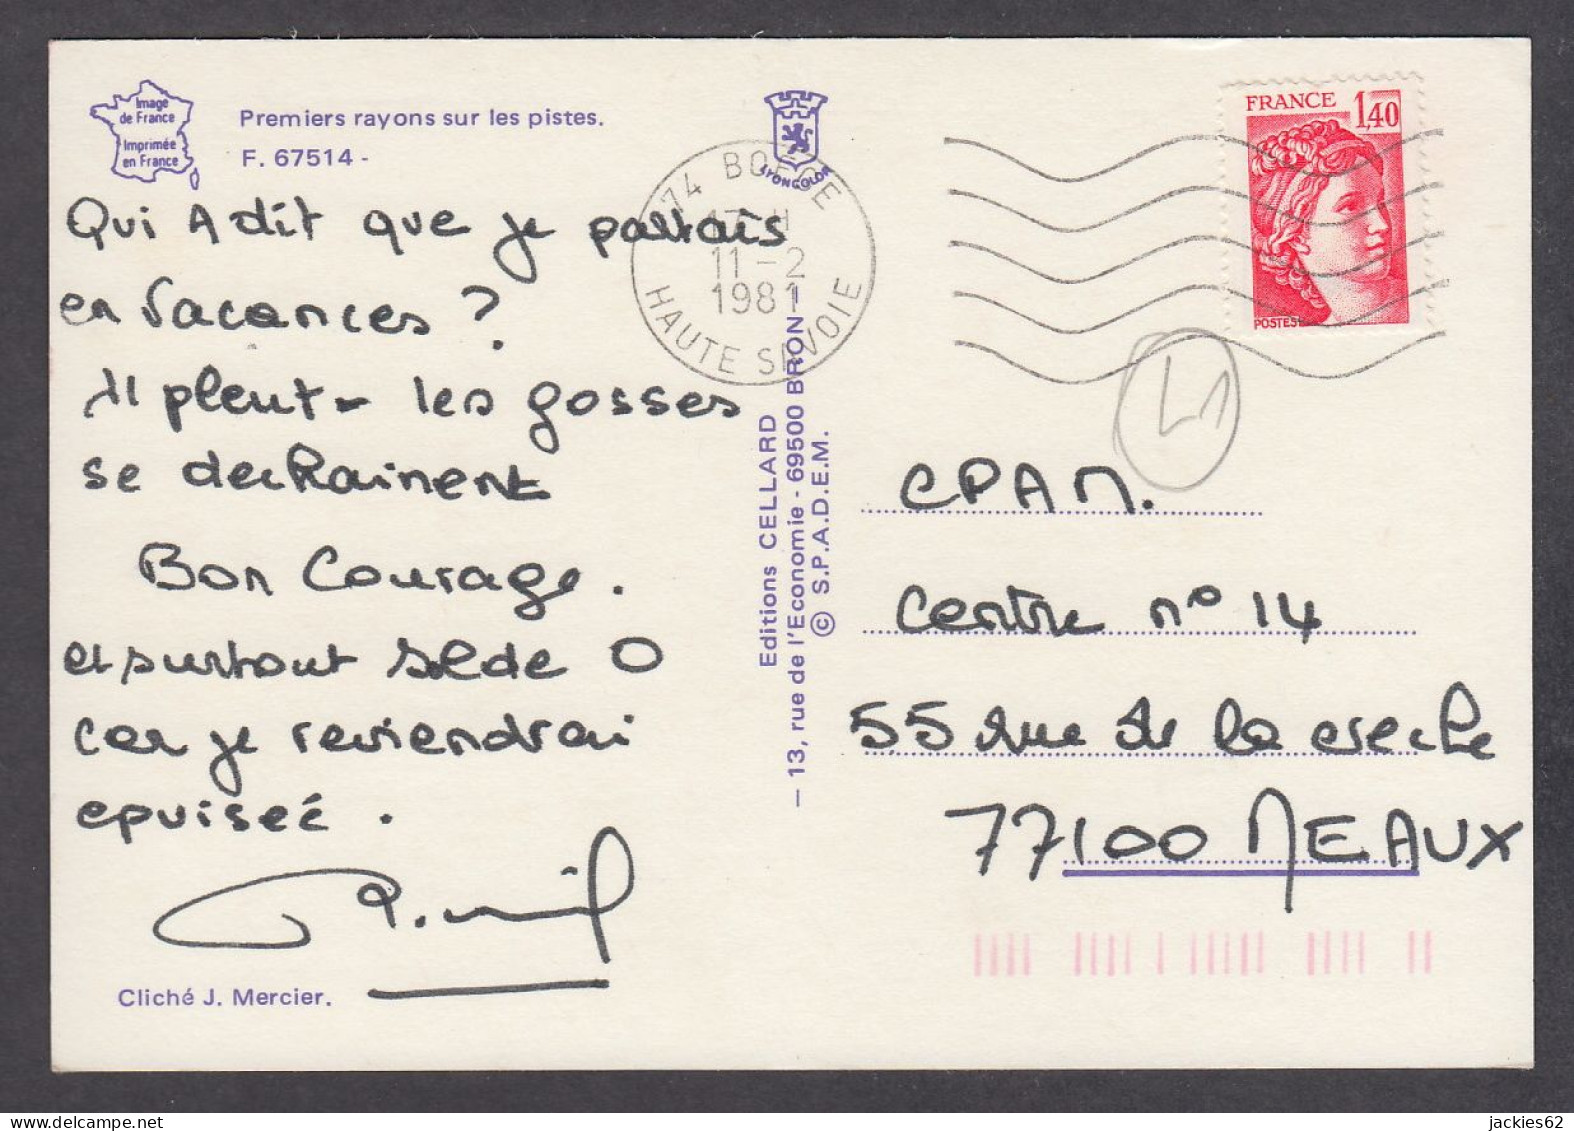 Image
de France
Imprimée
en France
Premiers rayons sur les pistes.
F. 67514 -
Qui A dit que je partais
en vacances ?
Il pleut - les gosses
se dechainent
Bon Courage.
et surtout solde 0
car je reviendrai
epuiseé.
Cliché J. Mercier.
LYONCOLOR
74 BOEGE
17 H
11-2
1981
HAUTE SAVOIE
Editions CELLARD
- 13, rue de l'Economie - 69500 BRON -
© S.P.A.D.E.M.
FRANCE 1,40
POSTES
L1
CPAM.
Centre n° 14
55 rue de la creche
77100 MEAUX
jackies62